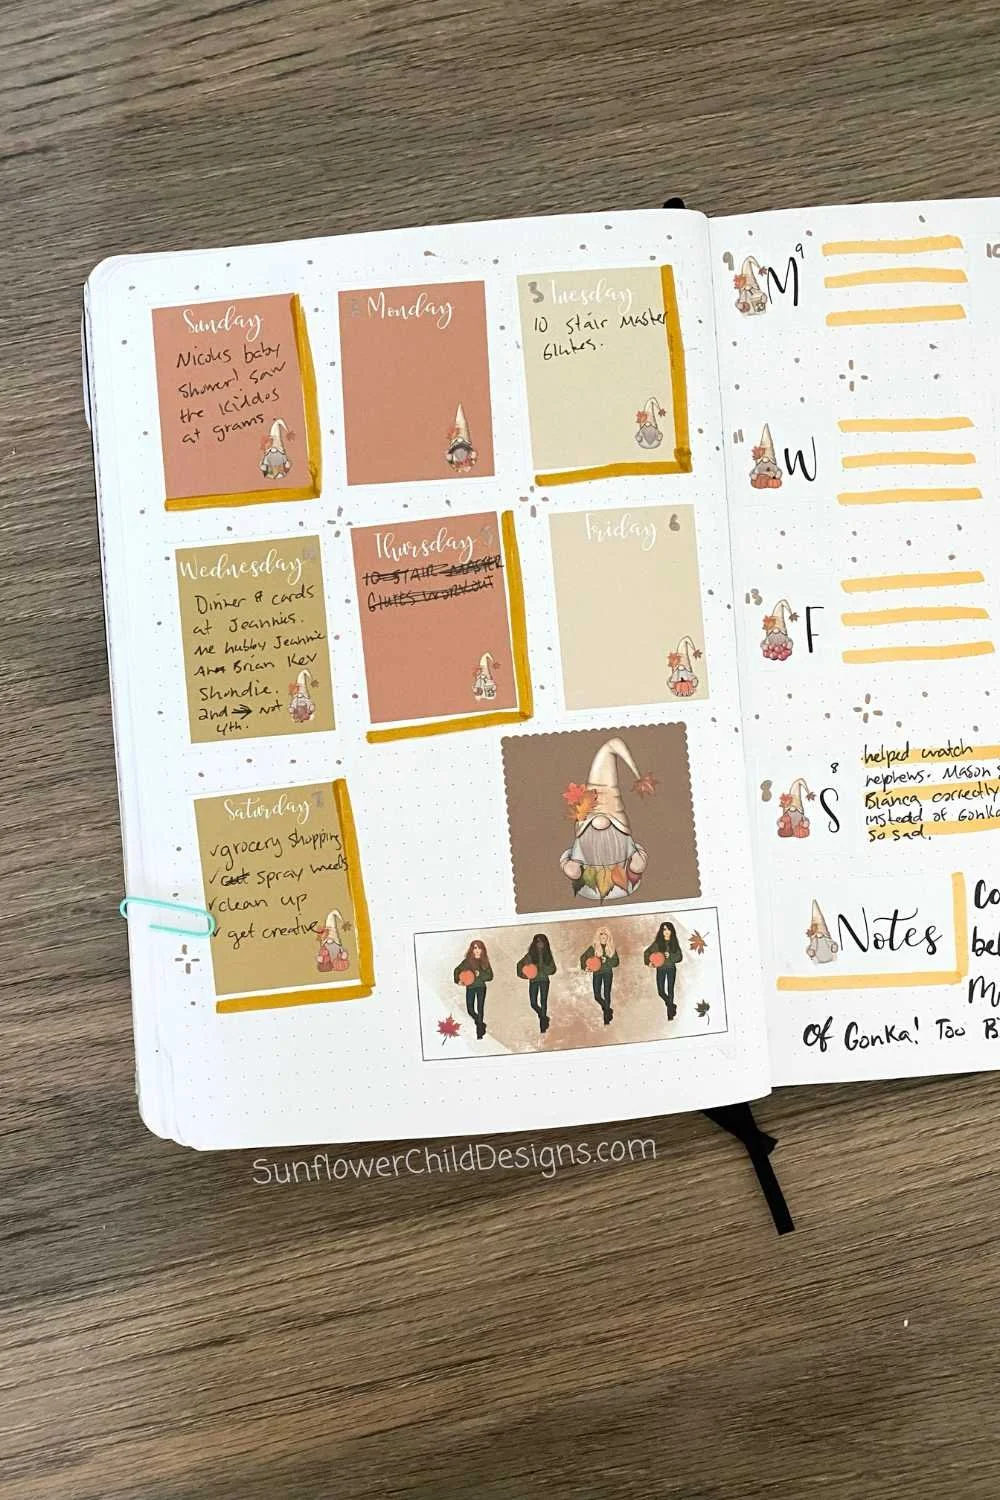 Sunday
Nicoles baby
shower! Saw
the kiddos
at grams
2 Monday
3 Tuesday
10 stair master
Glutes.
Wednesday
Dinner & cards
at Jeannies.
me hubby Jeannie
Brian Kev
Shondie.
2nd → not
4th.
Thursday 5
10 STAIR MASTER
Glutes WORKOUT
Friday 6
Saturday 7
✓grocery shopping
✓cut spray weeds
✓clean up
✓ get creative
9 M 9
10
11 W
13 F
8 S 8
helped watch
nephews. Mason &
Bianca correctly
instead of Gonka
so sad.
Notes
of Gonka! Too
SunflowerChildDesigns.com